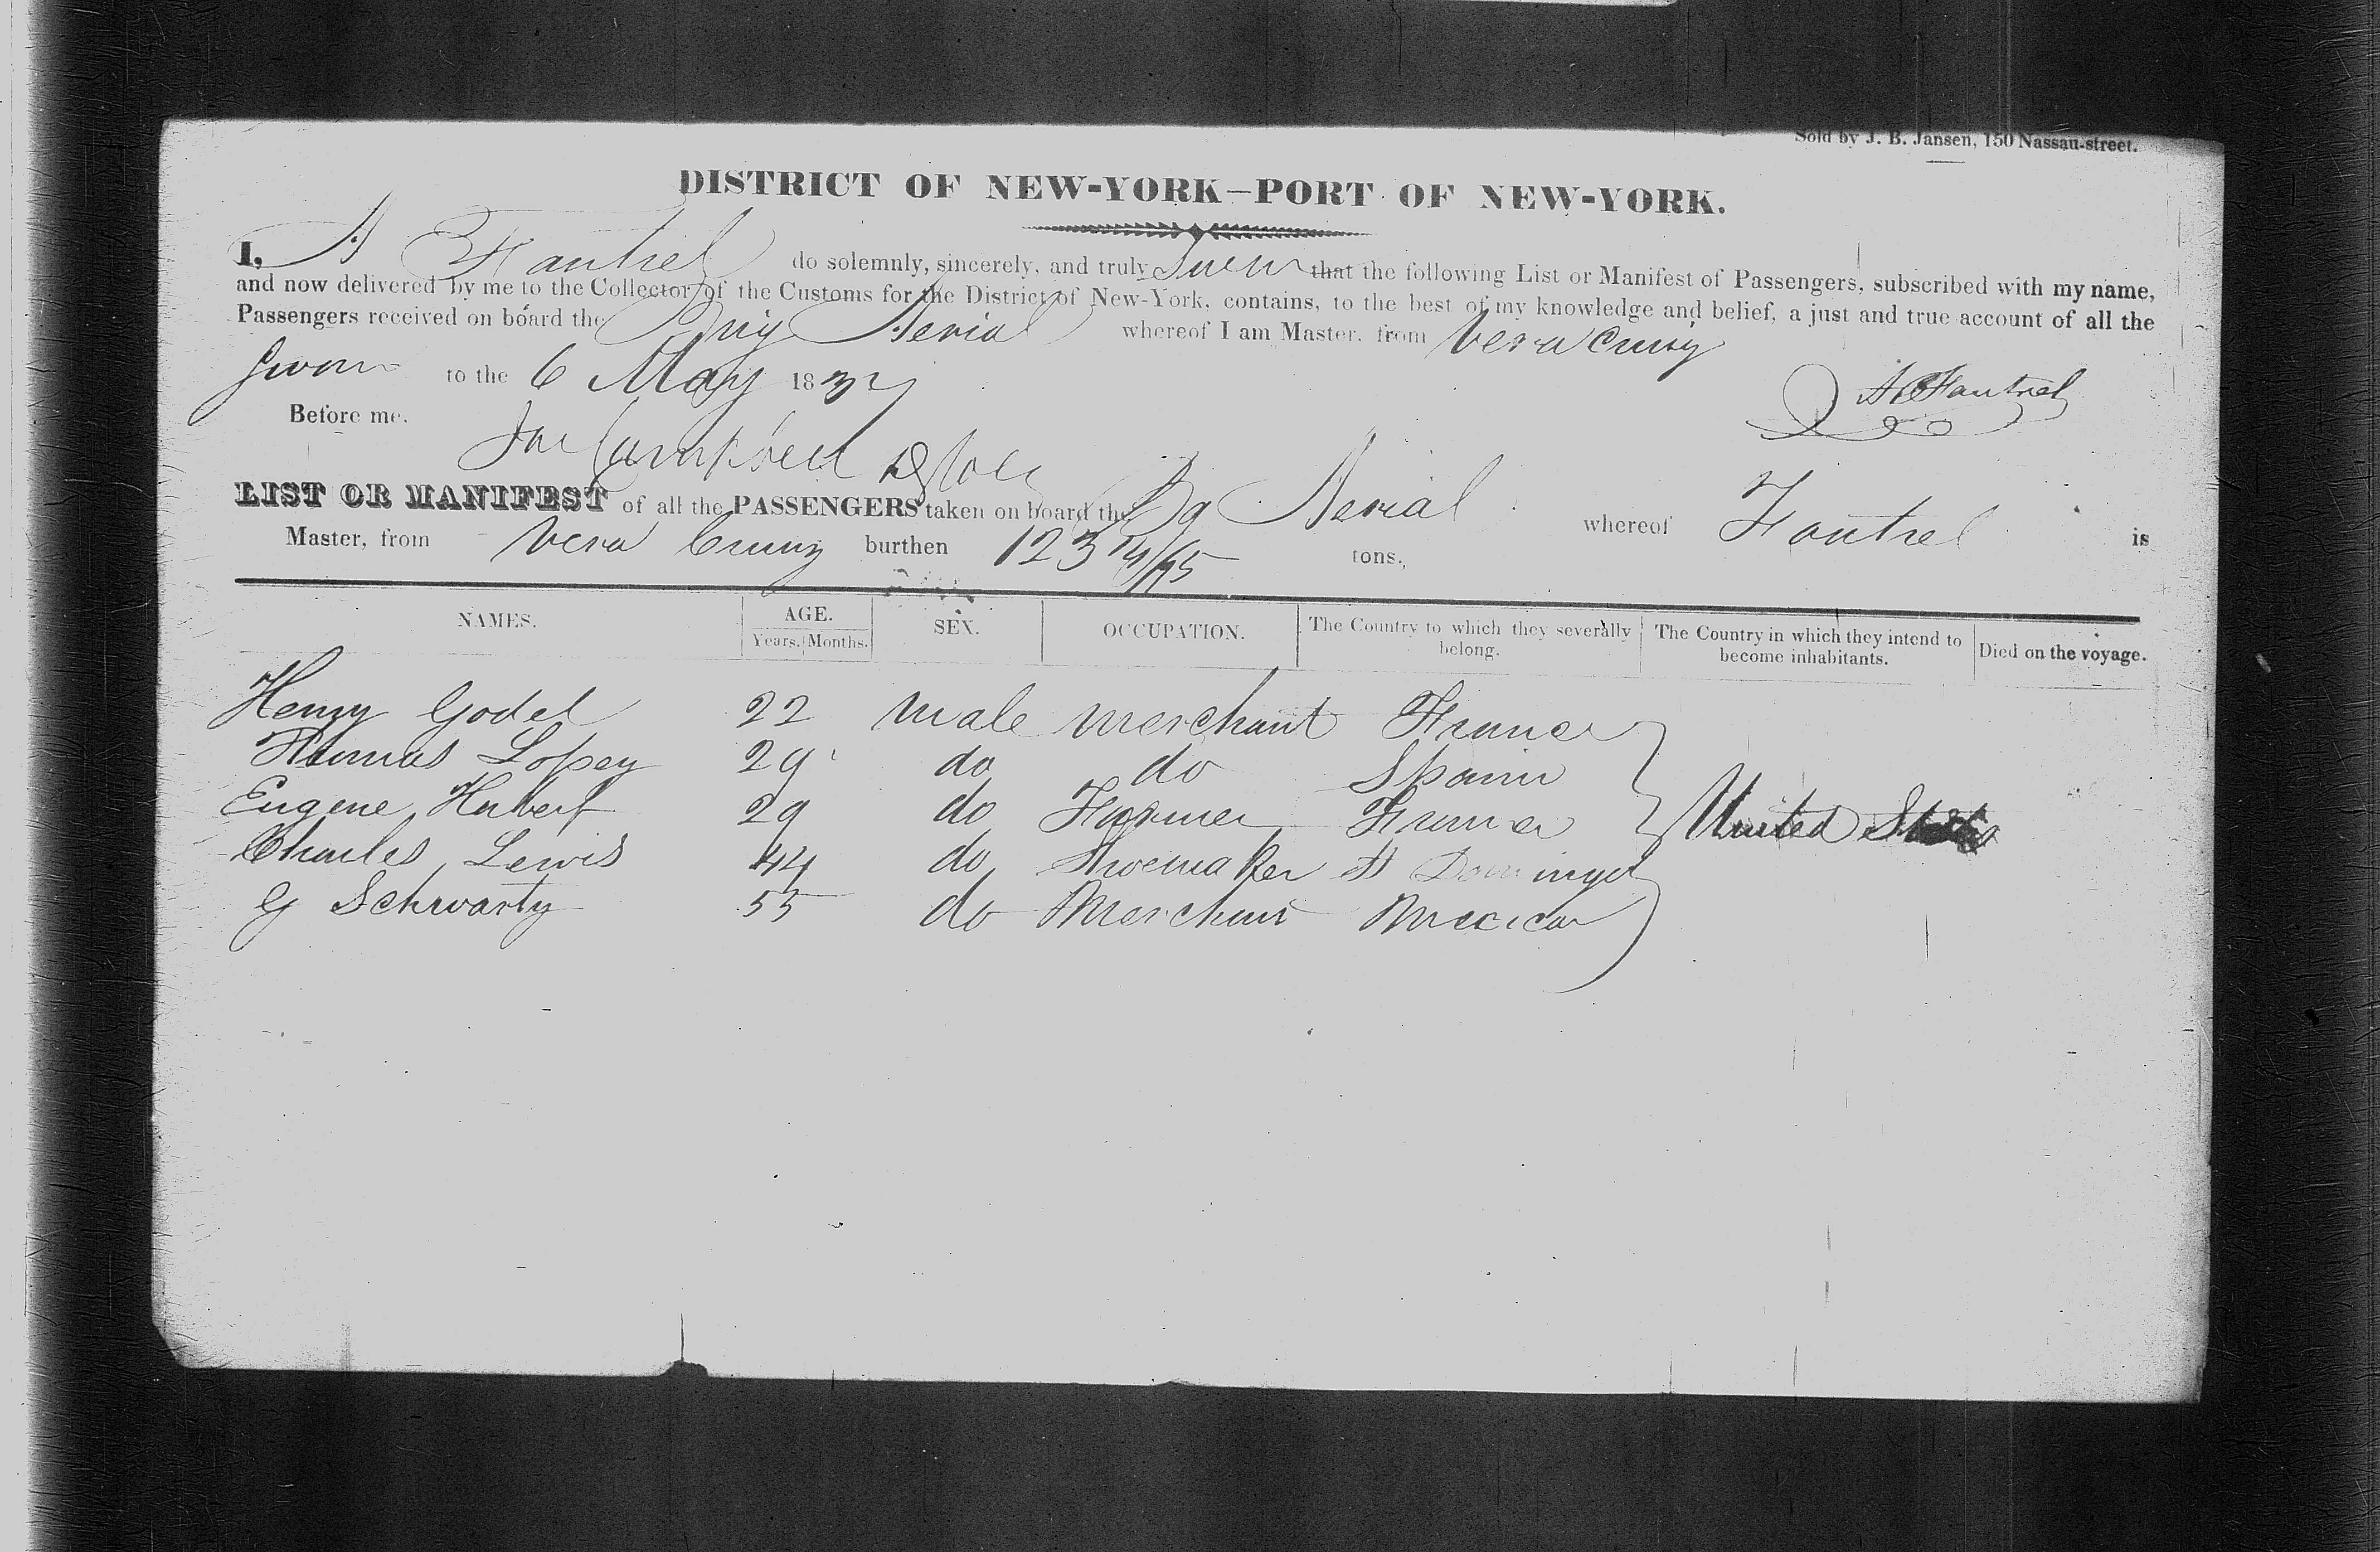 Sold by J. B. Jansen, 150 Nassau-street.
DISTRICT OF NEW-YORK—PORT OF NEW-YORK.
I, A Fautrel do solemnly, sincerely, and truly swear that the following List or Manifest of Passengers, subscribed with my name,
and now delivered by me to the Collector of the Customs for the District of New-York, contains, to the best of my knowledge and belief, a just and true account of all the
Passengers received on board the Brig Aerial whereof I am Master, from Vera Cruz
Sworn to the 6 May 183
A Fautrel
Before me.
Campbell
LIST OR MANIFEST of all the PASSENGERS taken on board the Bg Aerial whereof Fautrel is
Master, from Vera Cruz burthen 123 tons.
NAMES. AGE. SEX. OCCUPATION. The Country to which they severally belong. The Country in which they intend to become inhabitants. Died on the voyage.
Years. Months.
Henry Godel 22 male merchant France
Thomas Lopez 29 do do Spain
Eugene Hubert 29 do Farmer France United States
Charles Lewis 44 do Shoemaker St Domingo
G Schwartz 55 do Merchant Mexico